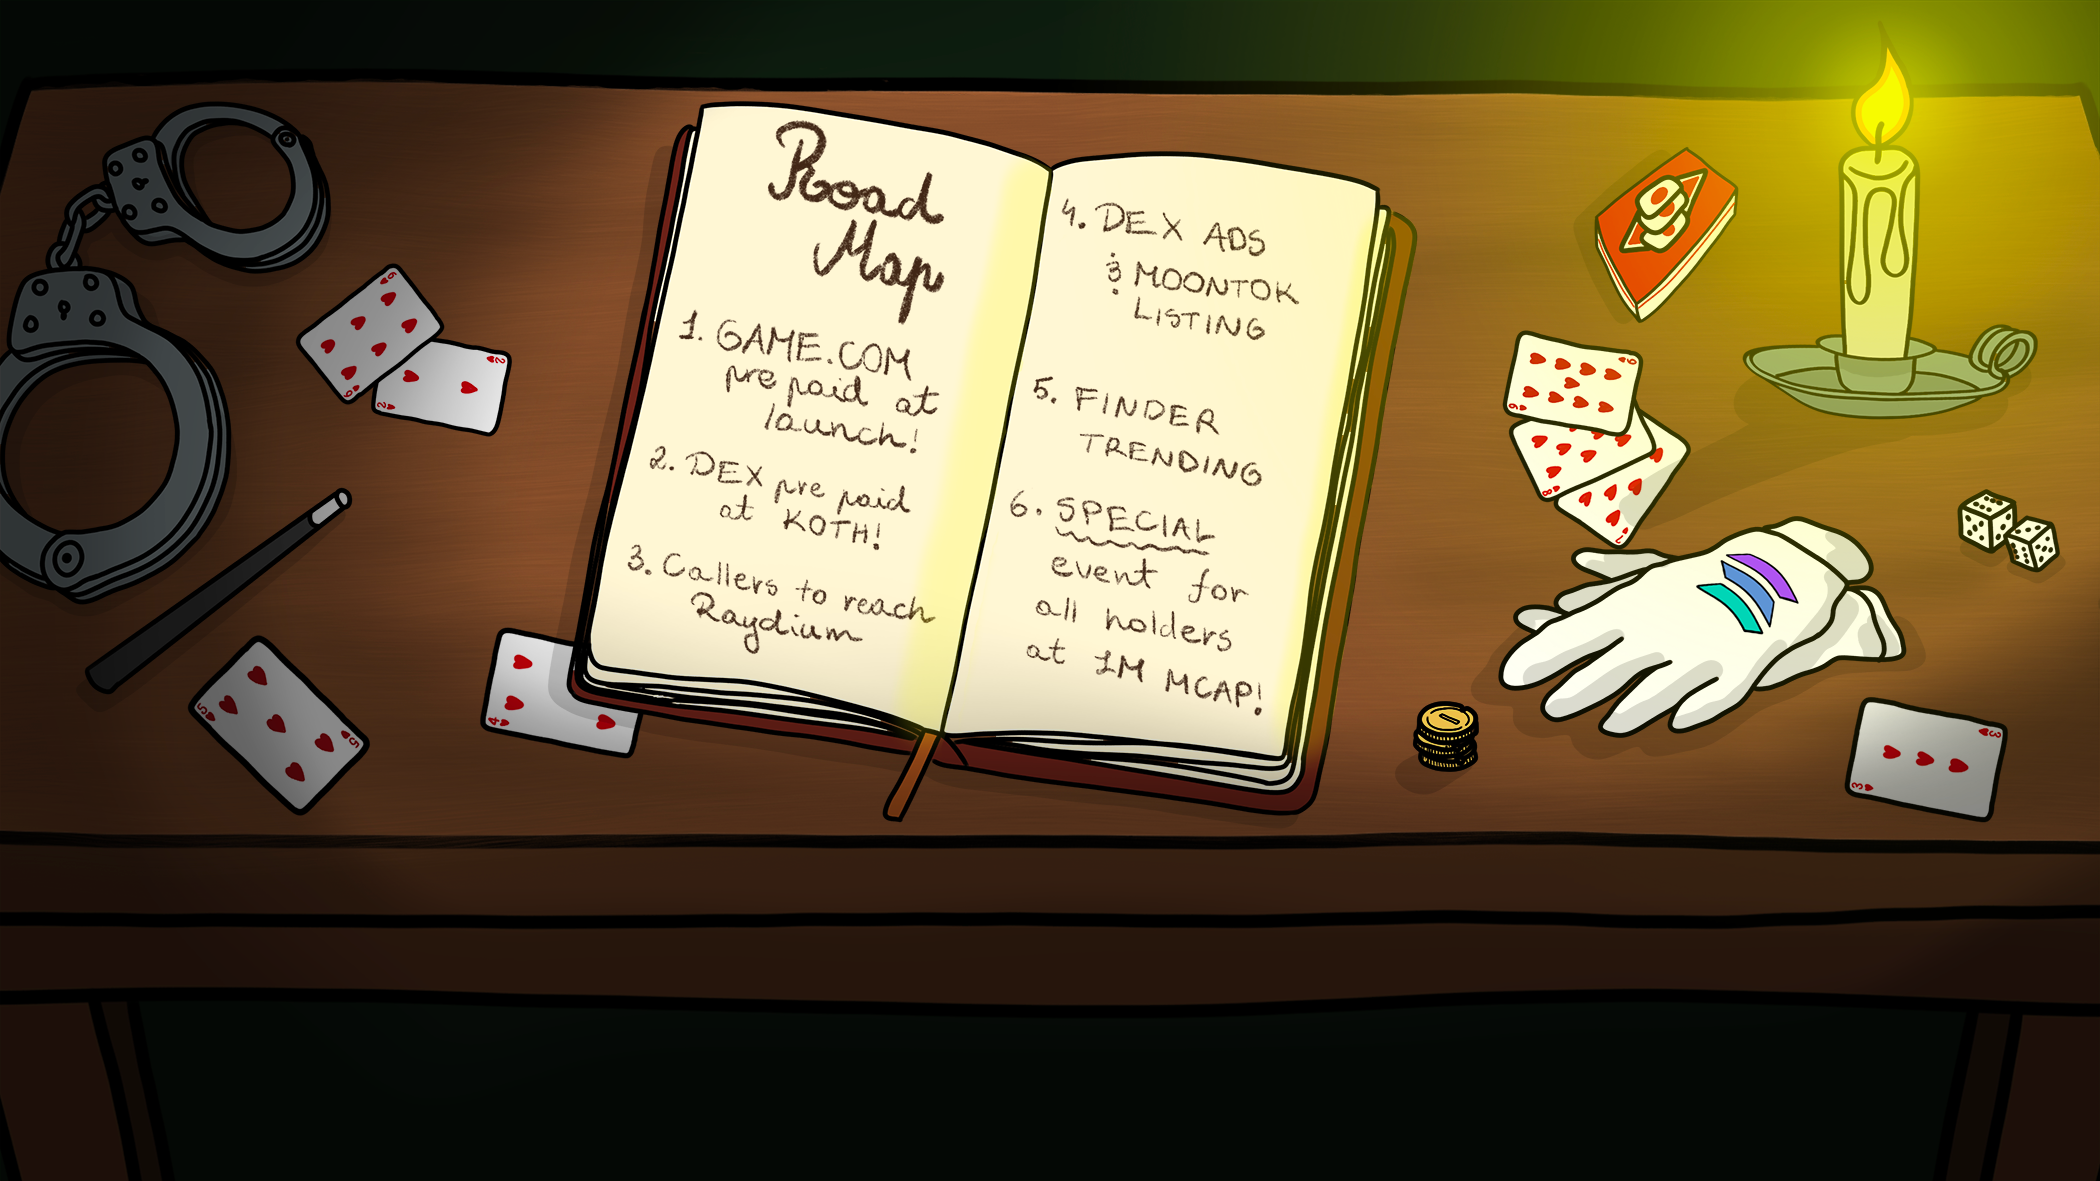 Road
Map
1. GAME.COM
pre paid at
launch!
2. DEX pre paid
at KOTH!
3. Callers to reach
Raydium
4. DEX ADS
& MOONTOK
LISTING
5. FINDER
TRENDING
6. SPECIAL
event for
all holders
at 1M MCAP!
6
6
2
2
5
5
4
9
9
8
7
3
3